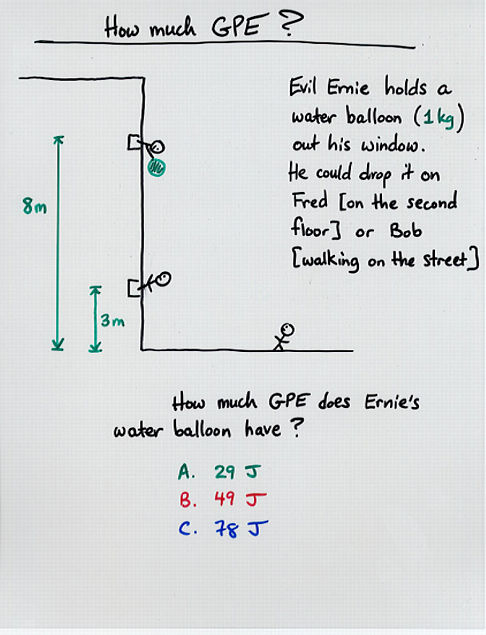 How much GPE?
Evil Ernie holds a
water balloon (1kg)
out his window.
He could drop it on
Fred [on the second
floor] or Bob
[walking on the street]
8m
3m
How much GPE does Ernie's
water balloon have?
A. 29 J
B. 49 J
C. 78 J